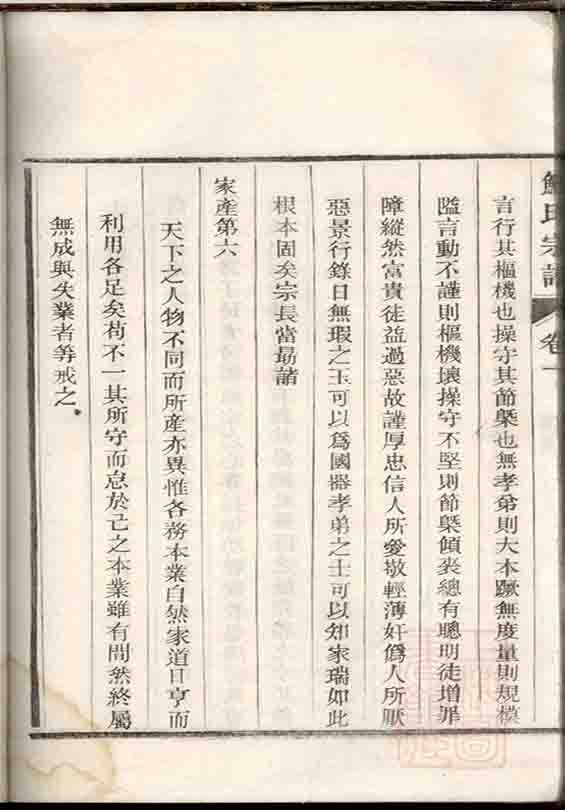 氏宗譜 卷一
言行其樞機也操守其節槩也無孝弟則大本蹶無度量則規模
隘言動不謹則樞機壞操守不堅則節槩傾喪總有聰明徒增罪
障縱然富貴徒益過惡故謹厚忠信人所愛敬輕薄奸僞人所厭
惡景行錄曰無瑕之玉可以爲國器孝弟之士可以知家瑞如此
根本固矣宗長當勗諸
家產第六
天下之人物不同而所產亦異惟各務本業自然家道日亨而
利用各足矣苟不一其所守而怠於己之本業雖有間然終屬
無成與失業者等戒之